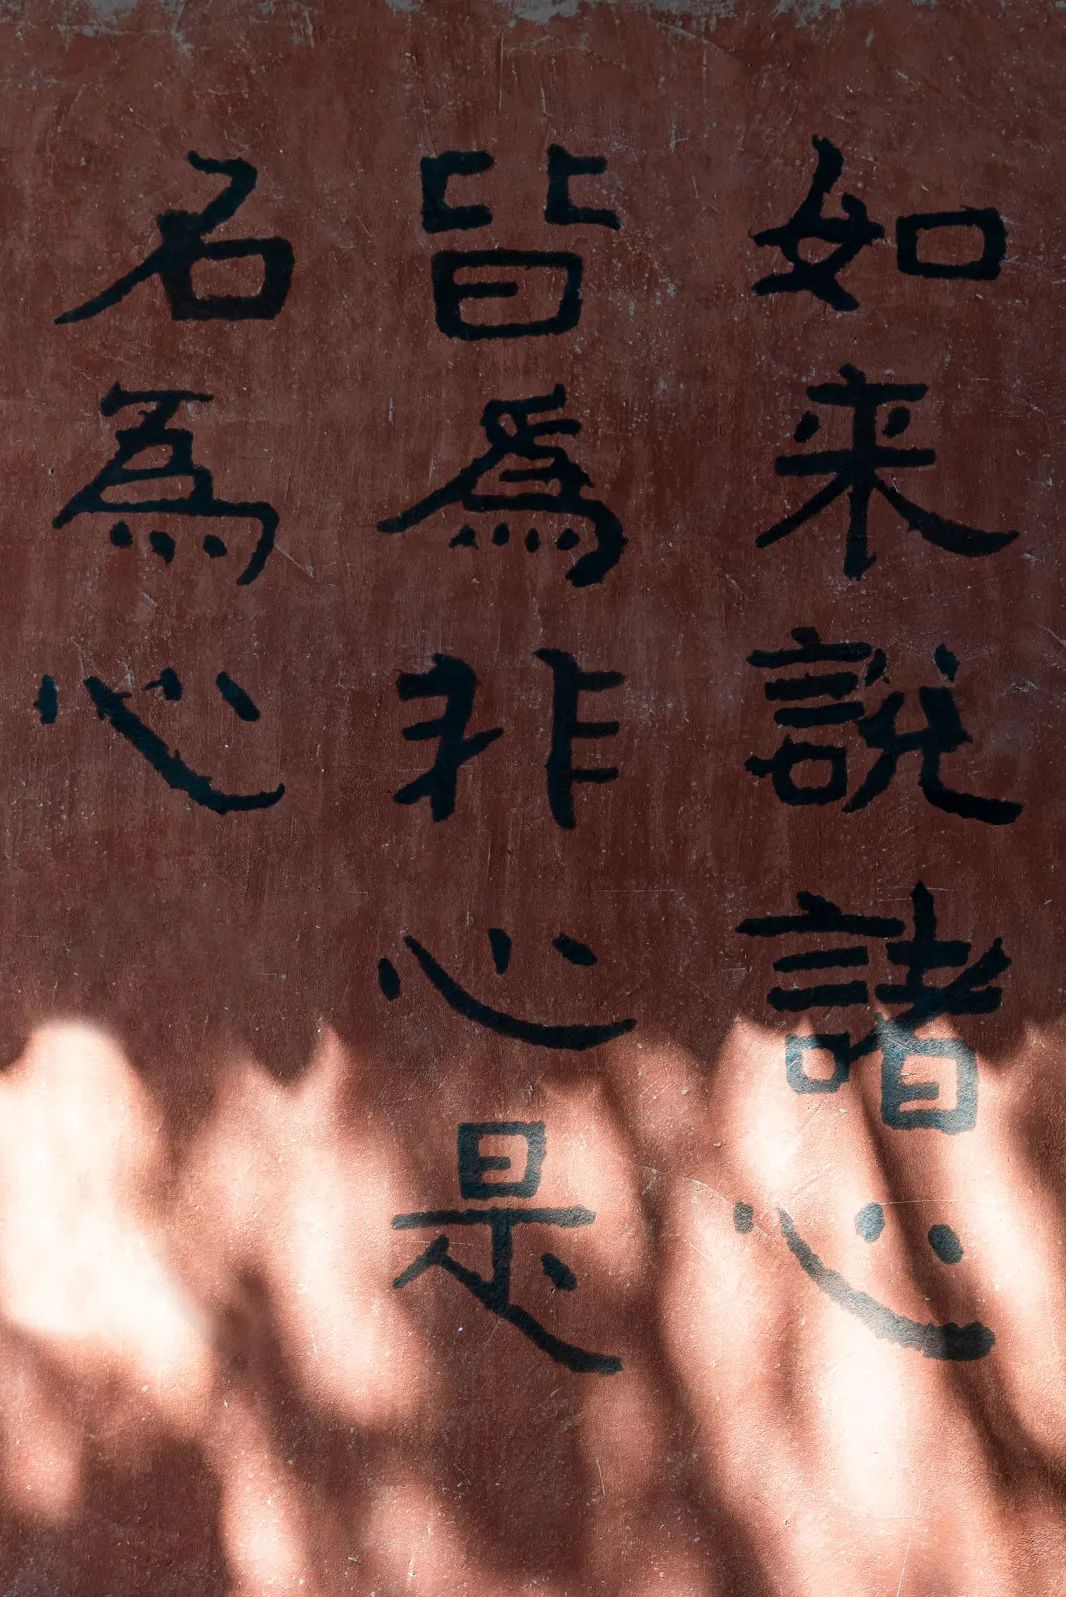 如来説諸心
皆爲非心是
名爲心